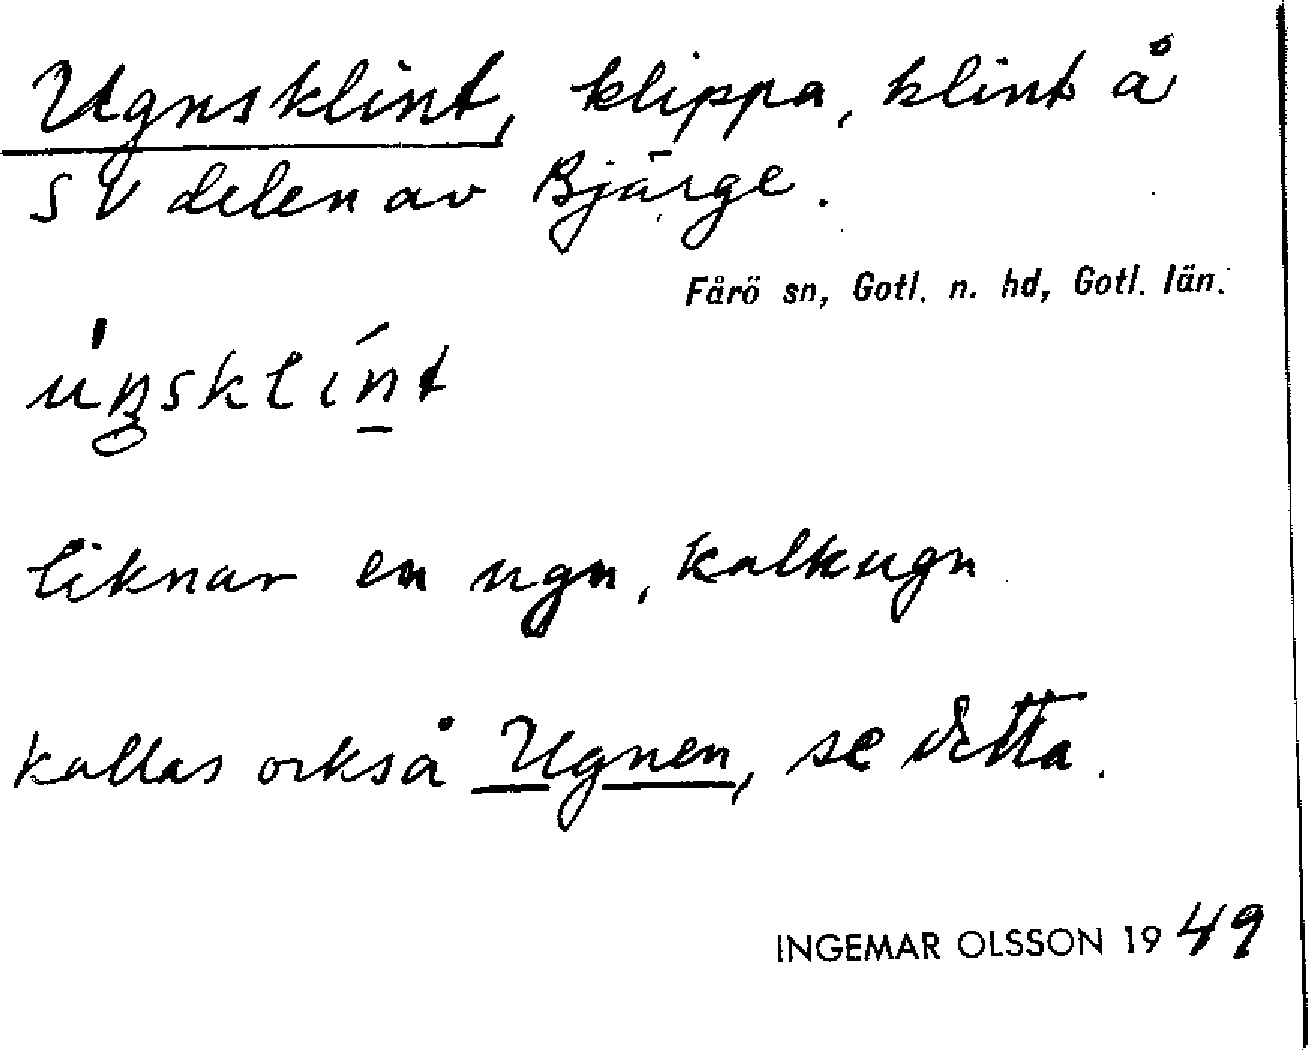 Ugnsklint, klippa, klint å
SV delen av Bjärge.
Fårö sn, Gotl. n. hd, Gotl. län.
liknar en ugn, kalkugn
kallas också Ugnen, se detta.
INGEMAR OLSSON 1949